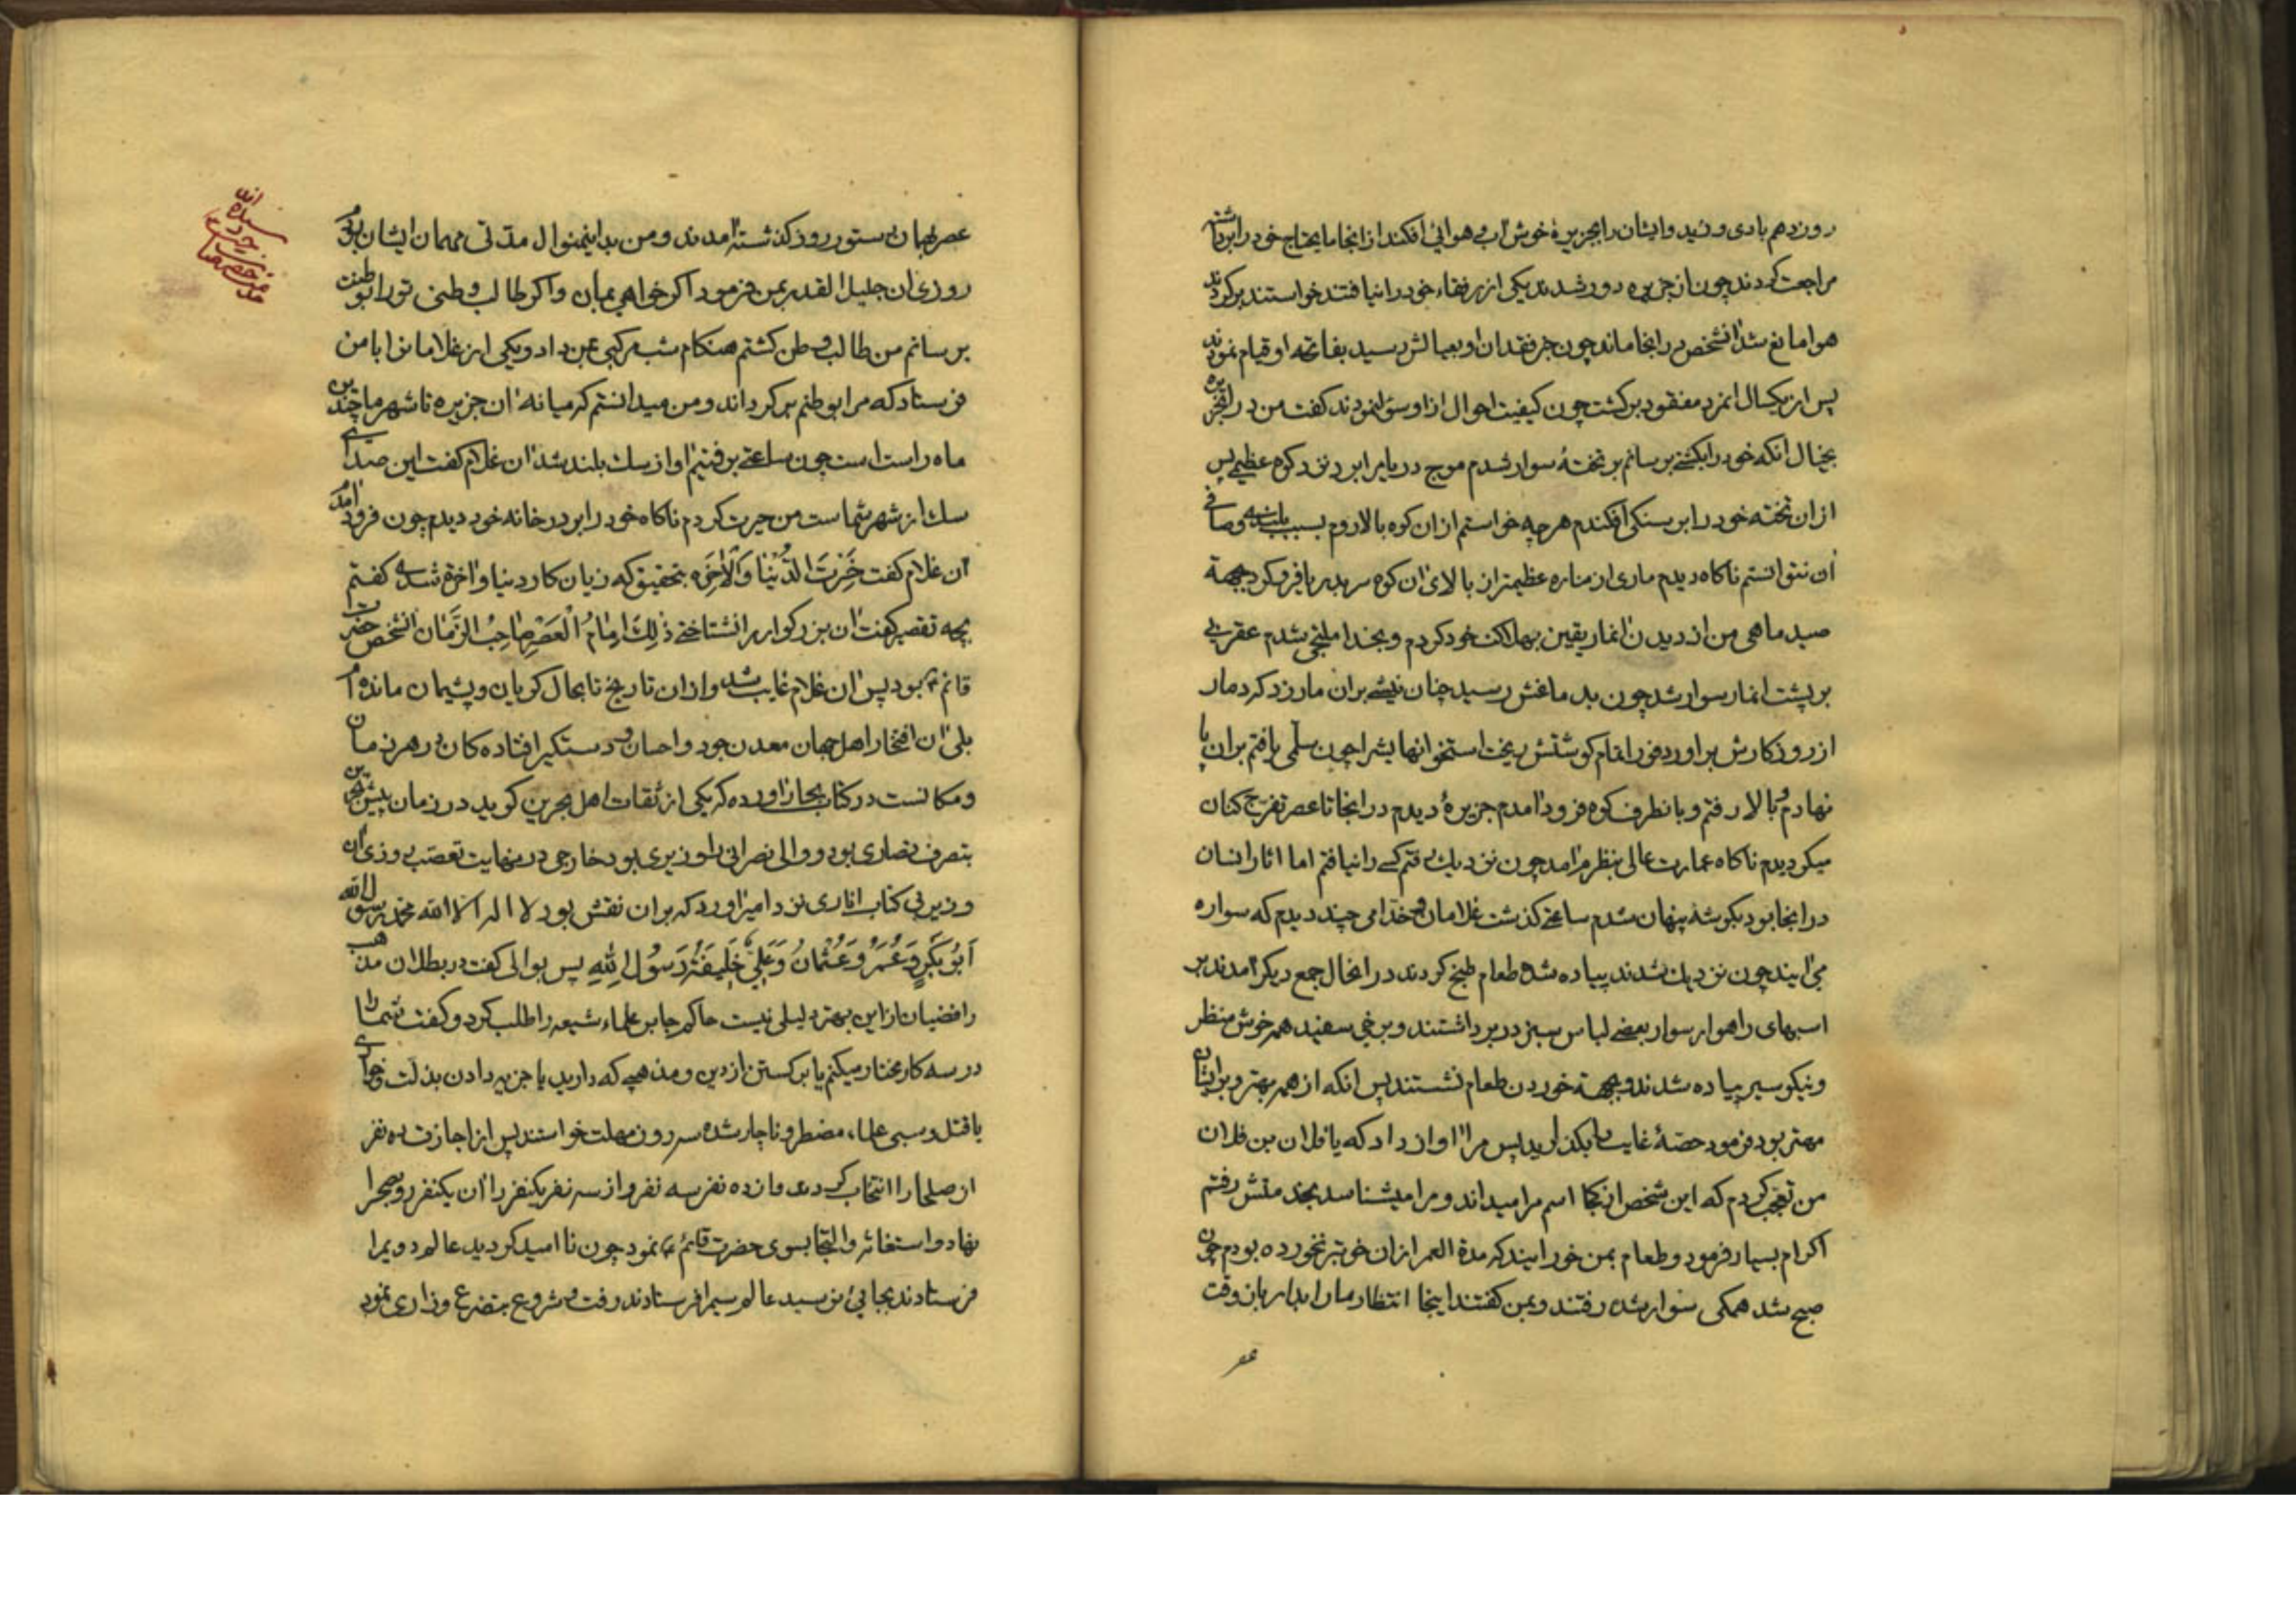 روز دهم بادی وزید وایشان را بجزیرهٔ خوش آب و هوائی افکند از انجا مایحتاج خود را برداشته
مراجعت کردند چون از جزیره دور شدند یکی از رفقاء خود را نیافتند خواستند برکردند
هوا مانع شد آنشخص در انجا ماند چون خبر فقدان او بعیالش رسید بفاتحه او قیام نمودند
پس از یکسال انمرد مفقود برکشت چون کیفیت احوال از او سؤال نمودند کفت من در انجزیره
بخیال انکه خود را بکشتی برسانم بر تختهٔ سوار شدم موج دریا مرا برد نزد کوه عظیمی پس
از ان تخته خود را بر سنکی افکندم هر چه خواستم از ان کوه بالا روم بسبب بلندی و صافی
آن نتوانستم ناکاه دیدم ماری از مناره عظیمتر از بالای ان کوه سر بدریا فرو کرد بجهة
صید ماهی من از دیدن انمار یقین بهلاکت خود کردم و بخدا ملتجی شدم عقربی
بر پشت انمار سوار شد چون بدماغش رسید چنان نیشی بران مار زد که دمار
از روزکارش براورد فورا تمام کوشتش ریخت استخوانهایشرا چون سلّمی یافتم بران پا
نهادم و بالا رفتم و بانطرف کوه فرود آمدم جزیرهٔ دیدم در انجا تا عصر تفرّج کنان
میکردیدم ناکاه عمارت عالی بنظرم آمد چون نزدیک رفتم کسی را نیافتم اما اثار انسان
در انجا بود بکوشهٔ پنهان شدم ساعتی کذشت غلامان و خدّامی چند دیدم که سواره
می ایند چون نزدیک شدند پیاده شده طعام طبخ کردند در انحال جمع دیکر آمدند بر
اسبهای راهوار سوار بعضی لباس سبز در بر داشتند و برخی سفید همه خوش منظر
و نیکو سیر پیاده شدند و بجهة خوردن طعام نشستند پس انکه از همه بهتر و برایشان
مهتر بود فرمود حصّهٔ غایب را بکذارید پس مرا آواز داد که یا فلان بن فلان
من تعجّب کردم که این شخص از کجا اسم مرا میداند و مرا میشناسد بخدمتش رفتم
اکرام بسیار فرمود و طعام بمن خورانید که مدة العمر ازان خوبتر نخورده بودم چون
صبح شد همکی سوار شده رفتند و بمن کفتند اینجا انتظار ما را بدار باز وقت
عصر
عصر بهمان دستور روز کذشته آمدند و من بدینمنوال مدّتی مهمان ایشان بودم
روزی ان جلیل القدر بمن فرمود اکر خواهی بمان و اکر طالب وطنی تو را بوطنت
برسانم من طالب وطن کشتم هنکام شب مرکبی بمن داد و یکی از غلامانرا با من
فرستاد که مرا بوطنم برکرداند و من میدانستم که میانهٔ ان جزیره تا شهر ما چندین
ماه راه است چون ساعتی برفتیم آواز سک بلند شد ان غلام کفت این صدای
سک از شهر شماست من حیرت کردم ناکاه خود را بر در خانه خود دیدم چون فرود آمدم
آن غلام کفت خَسِرتَ الدُّنْیَا وَالْآخِرَة بتحقیق که زیان کار دنیا و اخرة شدی کفتم
بچه تقصیر کفت ان بزرکوار را نشناختی ذٰلِکَ اِمَامُ الْعَصْرِ صَاحِبُ الزَّمَان آنشخص حضرت
قائم ع بود پس ان غلام غایب شد و ازان تاریخ تا بحال کریان و پشیمان مانده ام
بلی ان افتخار اهل جهان معدن جود و احسان و دستکیر افتاده کان در هر زمان
و مکانست در کتاب بحار آورده که یکی از ثقات اهل بحرین کوید در زمان پیش بحرین
بتصرف نصاری بود و والی نصرانی را وزیری بود خارجی در نهایت تعصّب روزی ان
وزیر بی کتاب اناری نزد امیر آورد که بران نقش بود لا اله الا الله محمد رسول الله
اَبُوبَکرٍ وَ عُمَرُ وَ عُثمَانُ وَ عَلِیٌّ خَلِیفَةُ رَسُولِ اللهِ پس بوالی کفت در بطلان مذهب
رافضیان از این بهتر دلیلی نیست حاکم جابر علماء شیعه را طلب کرد و کفت شما را
در سه کار مختار میکنم یا برکشتن از دین و مذهبی که دارید یا جزیه دادن بذلت و خواری
یا قتل و سبی علماء مضطر و ناچار شده سه روز مهلت خواستند پس از اجازت ده نفر
از صلحا را انتخاب کردند و از ده نفر سه نفر و از سه نفر یکنفر را آن یکنفر رو بصحرا
نهاد و استغاثه و التجا بسوی حضرت قائم ع نمود چون نا امید کردید عالم دویم را
فرستادند بجائی نرسید عالم سیم را فرستادند رفت و شروع بتضرع و زاری نمود